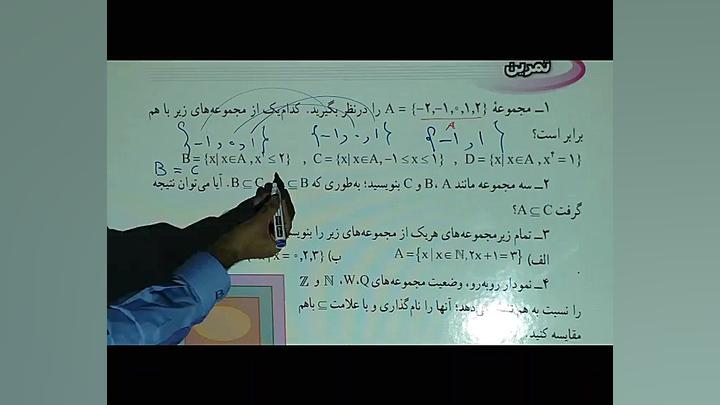 تمرین
۱ــ مجموعهٔ A = {−۲,−۱,۰,۱,۲} را درنظر بگیرید. کدام‌یک از مجموعه‌های زیر با هم
برابر است؟ {−1,0,1} {−1,0,1} {−1,1} A
B = {x|x∈A, x⁴ ≤ ۲} , C = {x|x∈A, −۱ ≤ x ≤ ۱} , D = {x|x∈A, x⁴ = ۱}
B = C
۲ــ سه مجموعه مانند A، B و C بنویسید؛ به‌طوری که ⊆B و B⊆C. آیا می‌توان نتیجه
گرفت A⊆C؟
۳ــ تمام زیرمجموعه‌های هریک از مجموعه‌های زیر را بنویسید
الف) A={x|x∈ℕ, ۲x+۱=۳} ب) |x = ۰,۲,۳}
۴ــ نمودار روبه‌رو، وضعیت مجموعه‌های W، Q، ℕ و ℤ
را نسبت به هم می‌دهد؛ آنها را نام‌گذاری و با علامت ⊆ باهم
مقایسه کنید.